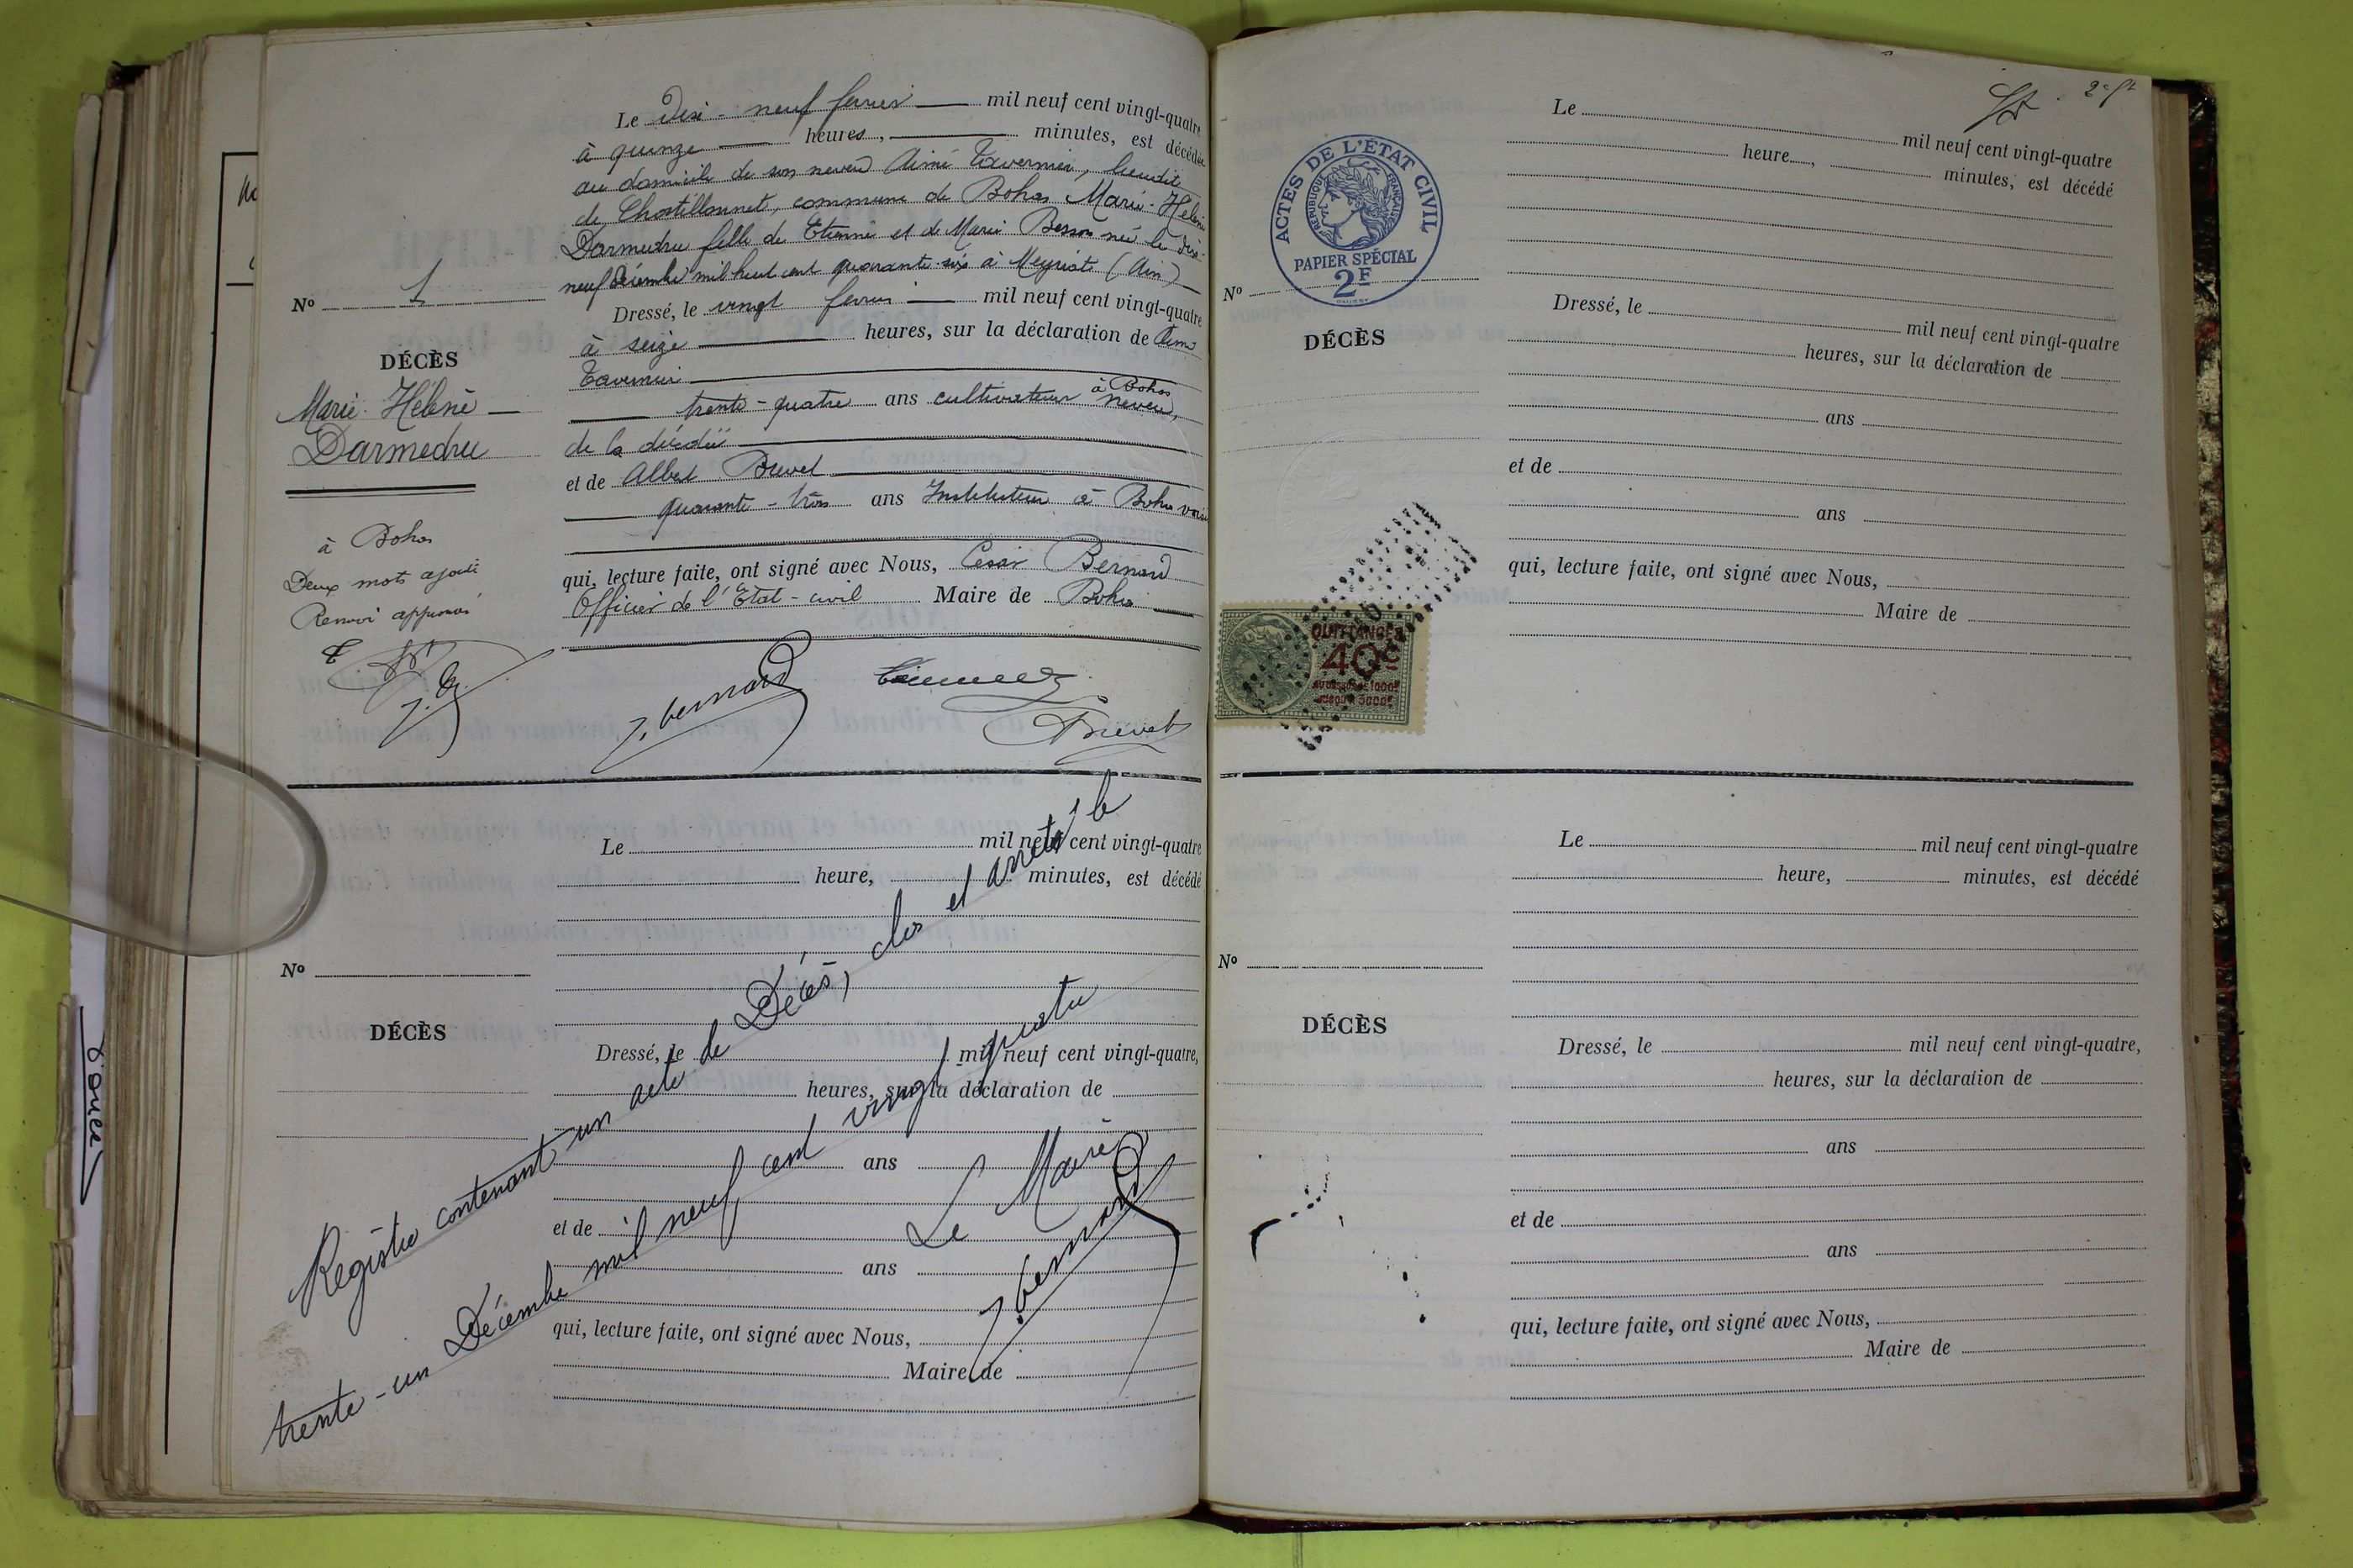 Le dix-neuf février mil neuf cent vingt-quatre
à quinze heures, minutes, est décédée
au domicile de son neveu Aimé Tavernier, lieudit
de Chatillonnet, commune de Bohas Marie-Hélène
Darmedru fille de Etienne et de Marie Besson née le dix-
neuf Décembre mil huit cent quarante-six à Meyriat (Ain)
Dressé, le vingt février mil neuf cent vingt-quatre
à seize heures, sur la déclaration de Aimé
Tavernier
trente-quatre ans cultivateur à Bohas neveu,
de la décédée
et de Albert Brevet
quarante-trois ans Instituteur à Bohas
qui, lecture faite, ont signé avec Nous, César Bernard
Officier de l'Etat-civil Maire de Bohas
J. Bernard
Brevet
No 1
DÉCÈS
Marie-Hélène
Darmedru
à Bohas
Deux mots ajouté
Renvoi approuvé
T
J. B.
Le mil neuf cent vingt-quatre
heure, minutes, est décédé
No
DÉCÈS
Dressé, le mil neuf cent vingt-quatre,
heures, sur la déclaration de
ans
et de
ans
qui, lecture faite, ont signé avec Nous,
Maire de
Registre contenant un acte de Décès, clos et arrêté le
trente-un Décembre mil neuf cent vingt quatre
Le Maire
J. Bernard
2e
ACTES DE L'ÉTAT CIVIL
RÉPUBLIQUE FRANÇAISE
PAPIER SPÉCIAL
2F
Le mil neuf cent vingt-quatre
heure, minutes, est décédé
No
DÉCÈS
Dressé, le mil neuf cent vingt-quatre
heures, sur la déclaration de
ans
et de
ans
qui, lecture faite, ont signé avec Nous,
Maire de
QUITTANCES
40c
Le mil neuf cent vingt-quatre
heure, minutes, est décédé
No
DÉCÈS
Dressé, le mil neuf cent vingt-quatre,
heures, sur la déclaration de
ans
et de
ans
qui, lecture faite, ont signé avec Nous,
Maire de